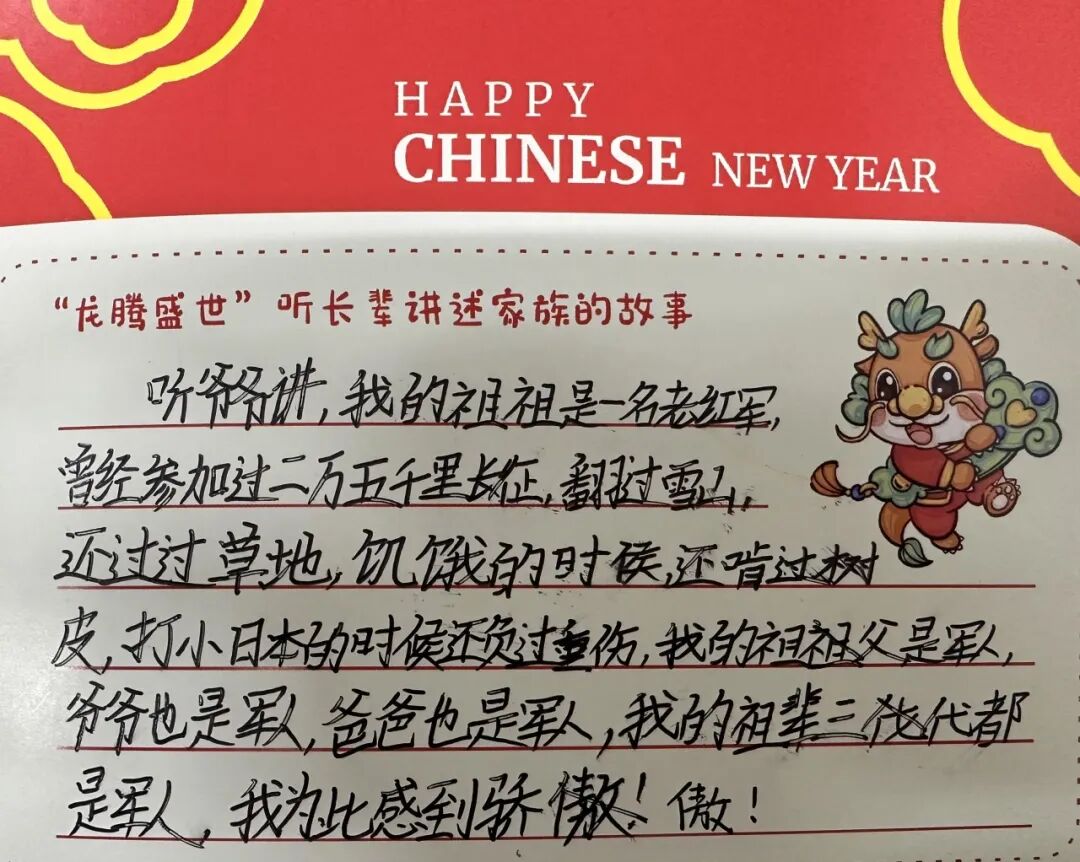 HAPPY
CHINESE NEW YEAR
“龙腾盛世”听长辈讲述家族的故事
听爷爷讲，我的祖祖是一名老红军，
曾经参加过二万五千里长征，翻过雪山，
还过过草地，饥饿的时候，还啃过树
皮，打小日本的时候还负过重伤，我的祖祖父是军人，
爷爷也是军人，爸爸也是军人，我的祖辈三代都
是军人，我为此感到骄傲！傲！